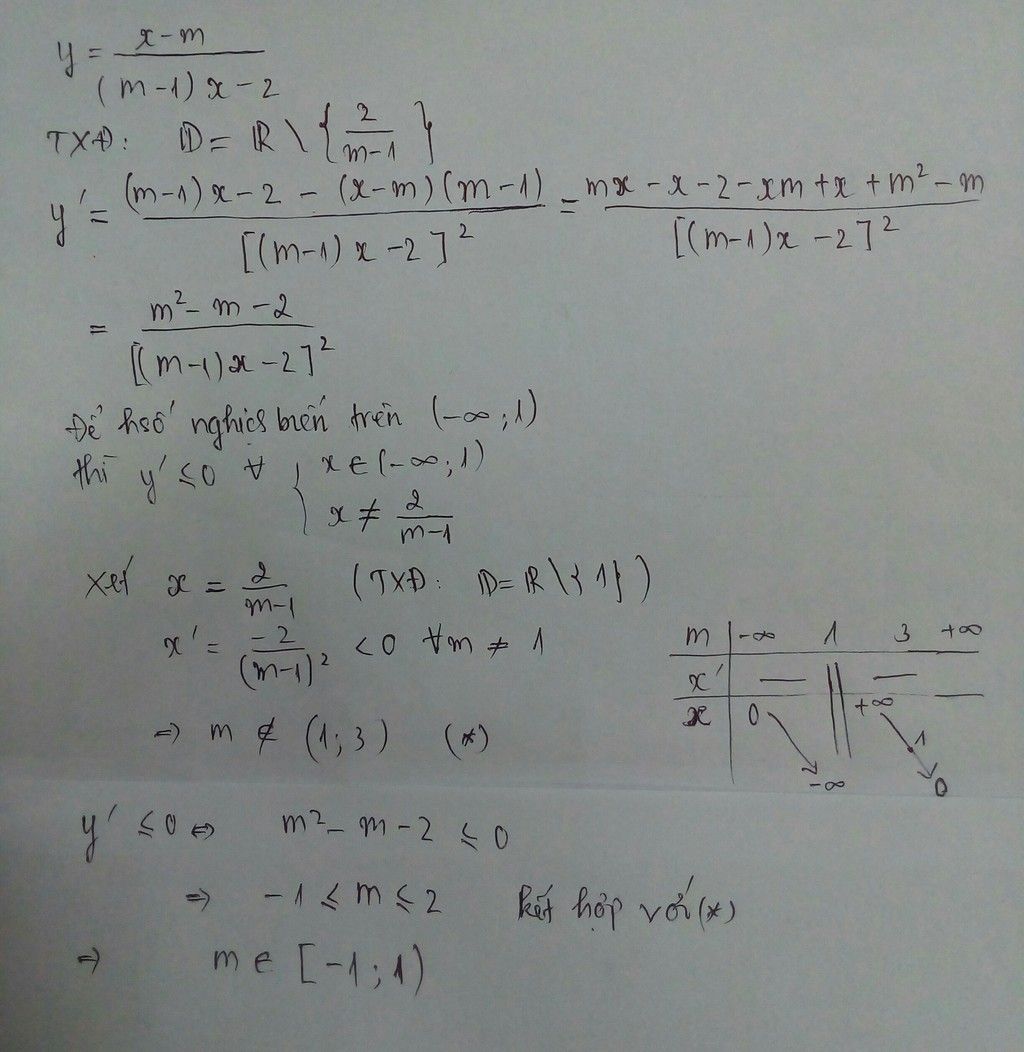 y = \frac{x-m}{(m-1)x-2}
TXĐ: D = R \ { \frac{2}{m-1} }
y' = \frac{(m-1)x-2-(x-m)(m-1)}{[(m-1)x-2]^2} = \frac{mx-x-2-xm+x+m^2-m}{[(m-1)x-2]^2}
= \frac{m^2-m-2}{[(m-1)x-2]^2}
Để hsố nghịch biến trên (-∞;1)
thì y' ≤ 0 ∀ { x ∈ (-∞;1)
x ≠ \frac{2}{m-1}
Xét x = \frac{2}{m-1} (TXĐ: D = R \ {1})
x' = \frac{-2}{(m-1)^2} < 0 ∀m ≠ 1
⇒ m ∉ (1;3) (*)
m | -∞ 1 3 +∞
x' | — || —
x | 0 ↘ -∞ || +∞ ↘ 1 ↘ 0
y' ≤ 0 ⇔ m^2 - m - 2 ≤ 0
⇒ -1 ≤ m ≤ 2 kết hợp với (*)
⇒ m ∈ [-1;1)